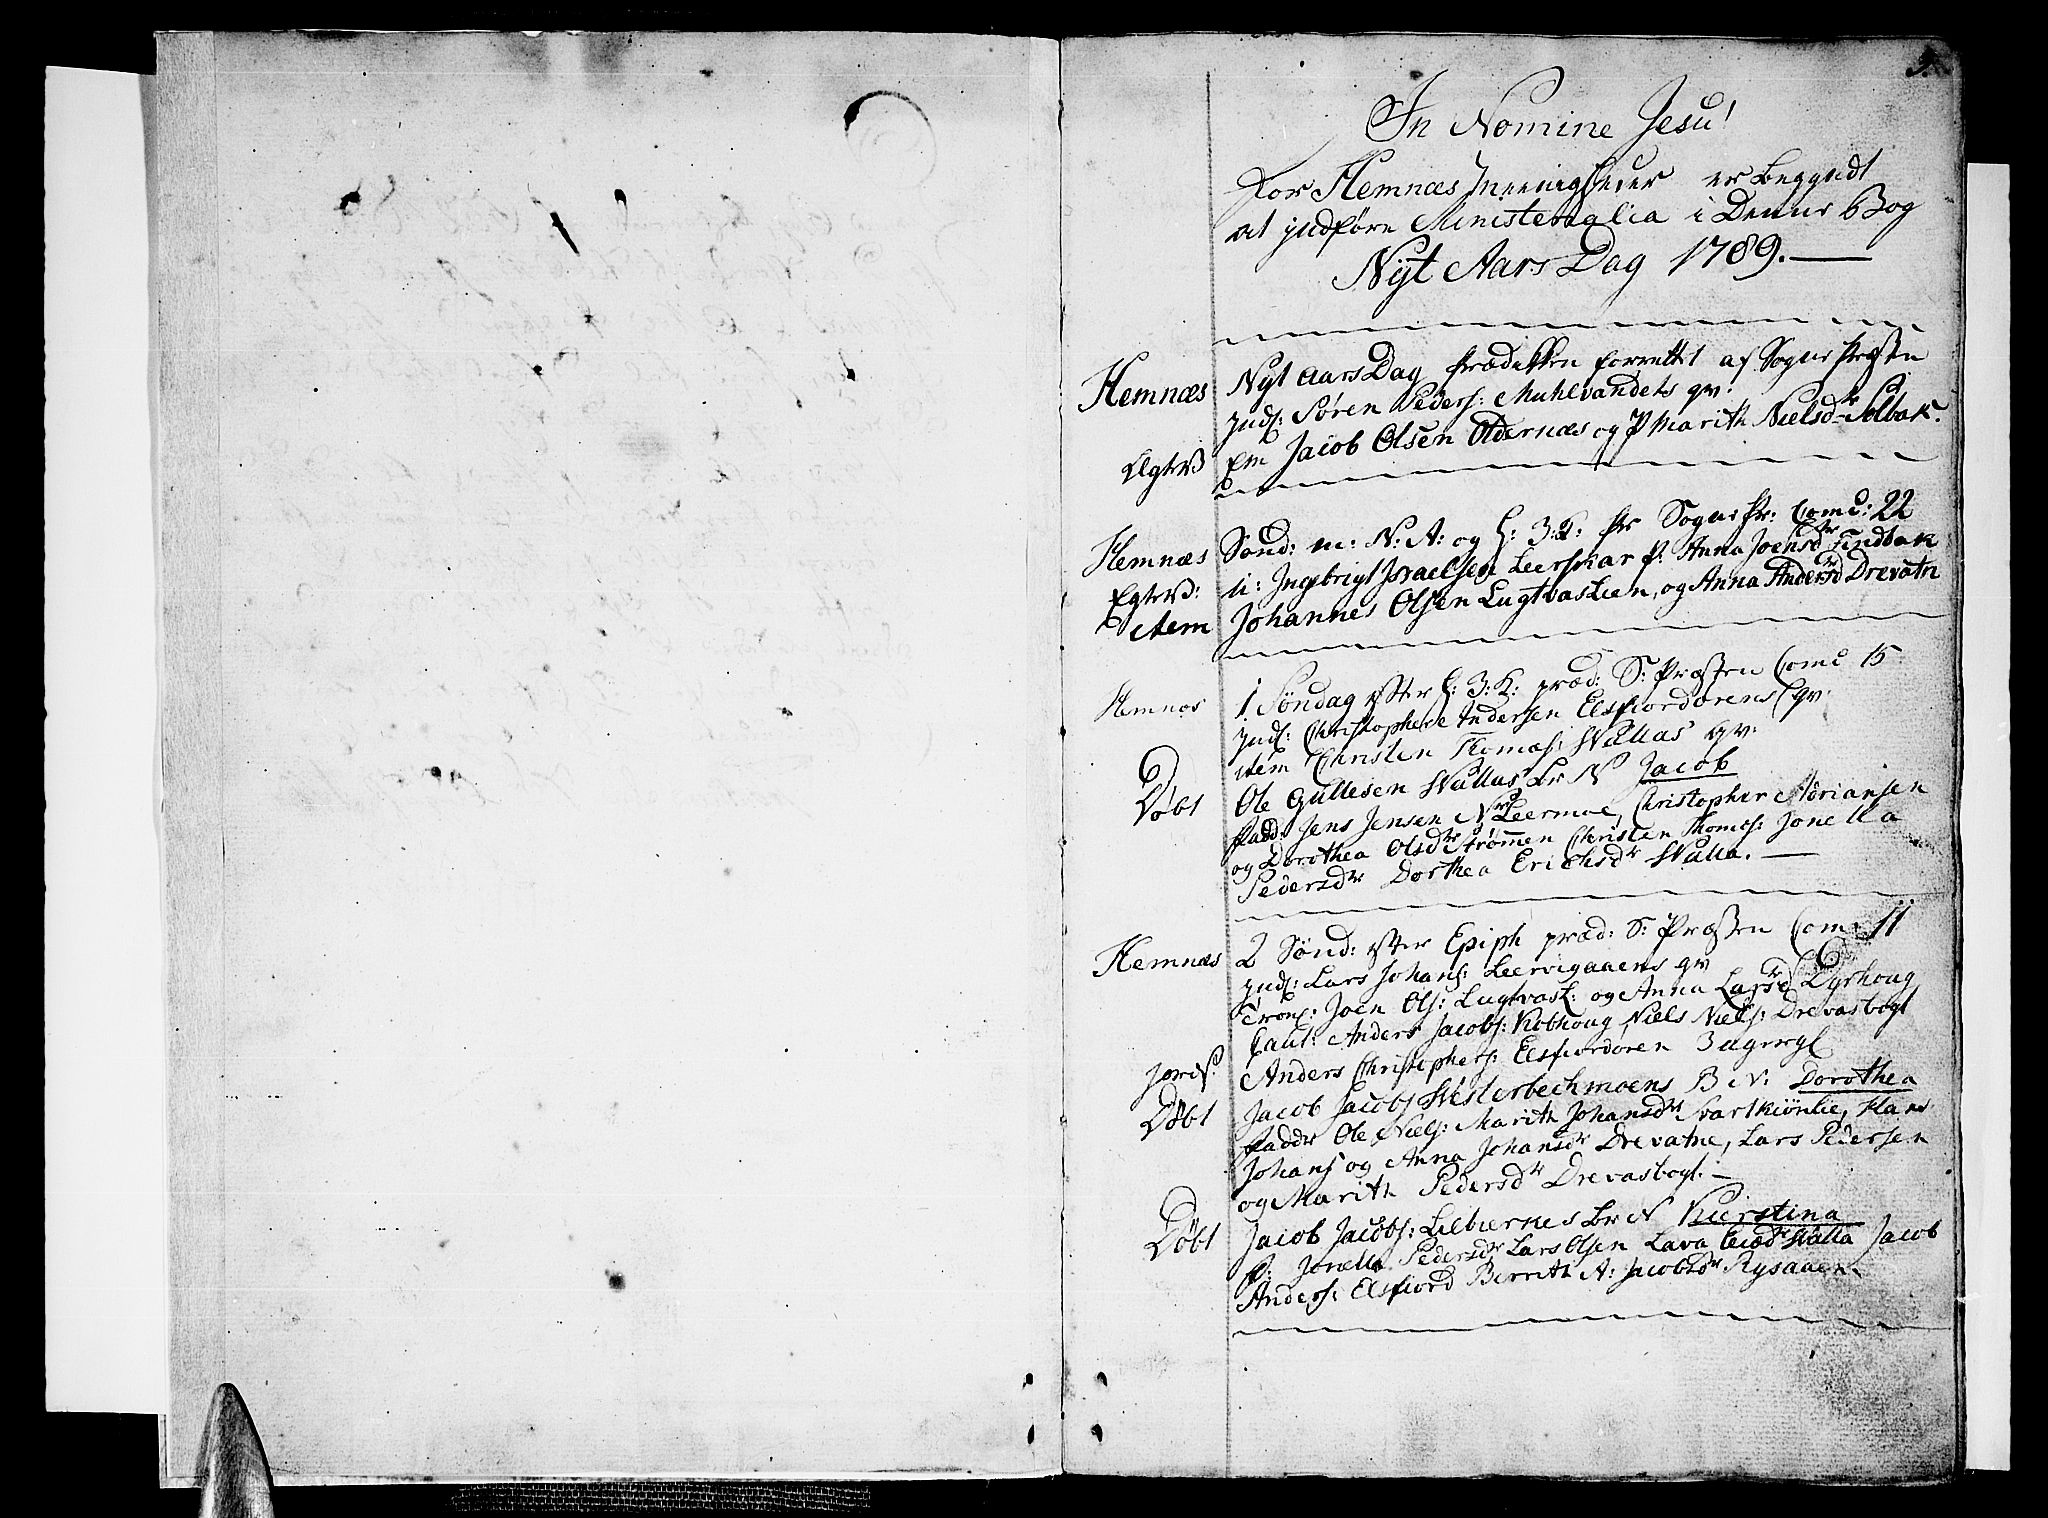 3.
In Nomine Jesu!
For Hemnæs Meenigheder er begyndt
at jndføre Ministerialia i Denne Bog
Nyt Aars Dag 1789.
Hemnæs Nyt Aars Dag Prædikken forrettet af Sogne Præsten
jndl: Søren Peders: Muhlvandets qv:
Egtev Em Jacob Olsen Oldernæs og P Marith Nielsdr Solbak.
Hemnæs Sønd: m: N: A: og h: 3: K: Pr Sogne Pr: Comc: 22
Egtev: U: Jngebrigt Jsraelsen Leerskar P: Anna Joensdr Findbak
Item Johannes Olsen Lugtvaslien, og Anna Andersdr Drevatn
Hemnæs 1 Søndag efter h: 3: K: præd: S: Præsten Comc 15
jndl: Christopher Andersen Elsfiordørens qv:
item Christen Thomæs: Wallas qv:
Døbt Ole Gullesen Wallas Br N Jacob
Fadd: Jens Jensen N Leermoe, Christopher Moriansen
og Dorothea Olsdr Strømmen Christen Thomæs: Jonella
Pedersdr Dorthea Erichsdr Walla.
Hemnæs 2 Sønd: efter Epiph præd: S: Præsten Com: 11
jndl: Lars Johans: Leervigaaens qv
Trol: Joen Ols: Lugtvasl: og Anna Larsdr Dyrhoug
Caut: Anders Jacobs: Kobhoug Niels Niels: Drevasbogt
Jords: Anders Christophers: Elsfiordøren 3 uger gl
Døbt Jacob Jacobs Westerbechmoens B N: Dorothea
Faddr Ole Niels: Marith Johansdr Svartkiønlie, Hans
Johans og Anna Johansdr Drevatne, Lars Pedersen
og Marith Pedersdr Drevasbogt.
Døbt Jacob Jacobs: Lilbiernes Br N Kierstina
F: Jonella Pedersdr Lars Olsen Lava Walla Jacob
Anders: Elsfiord Berrith A: Jacobsdr Rysaaen.